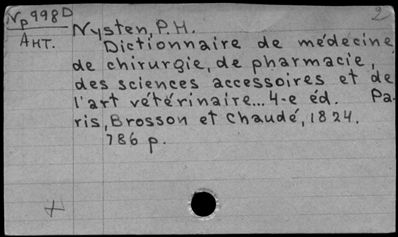 Np998D
2
Ант.
Nysten, P.H.
Dictionnaire de médecine
de chirurgie, de pharmacie,
des sciences accessoires et de
l'art vétérinaire... 4-e éd. Pa-
ris, Brosson et Chaudé, 1824.
786 p.